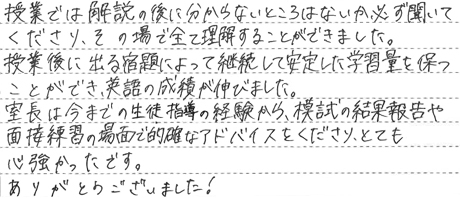 授業では解説の後に分からないところはないか、必ず聞いて
くださり、その場で全て理解することができました。
授業後に出る宿題によって継続して安定した学習量を保つ
ことができ、英語の成績が伸びました。
室長は今までの生徒指導の経験から、模試の結果報告や
面接練習の場面で的確なアドバイスをくださり、とても
心強かったです。
ありがとうございました!